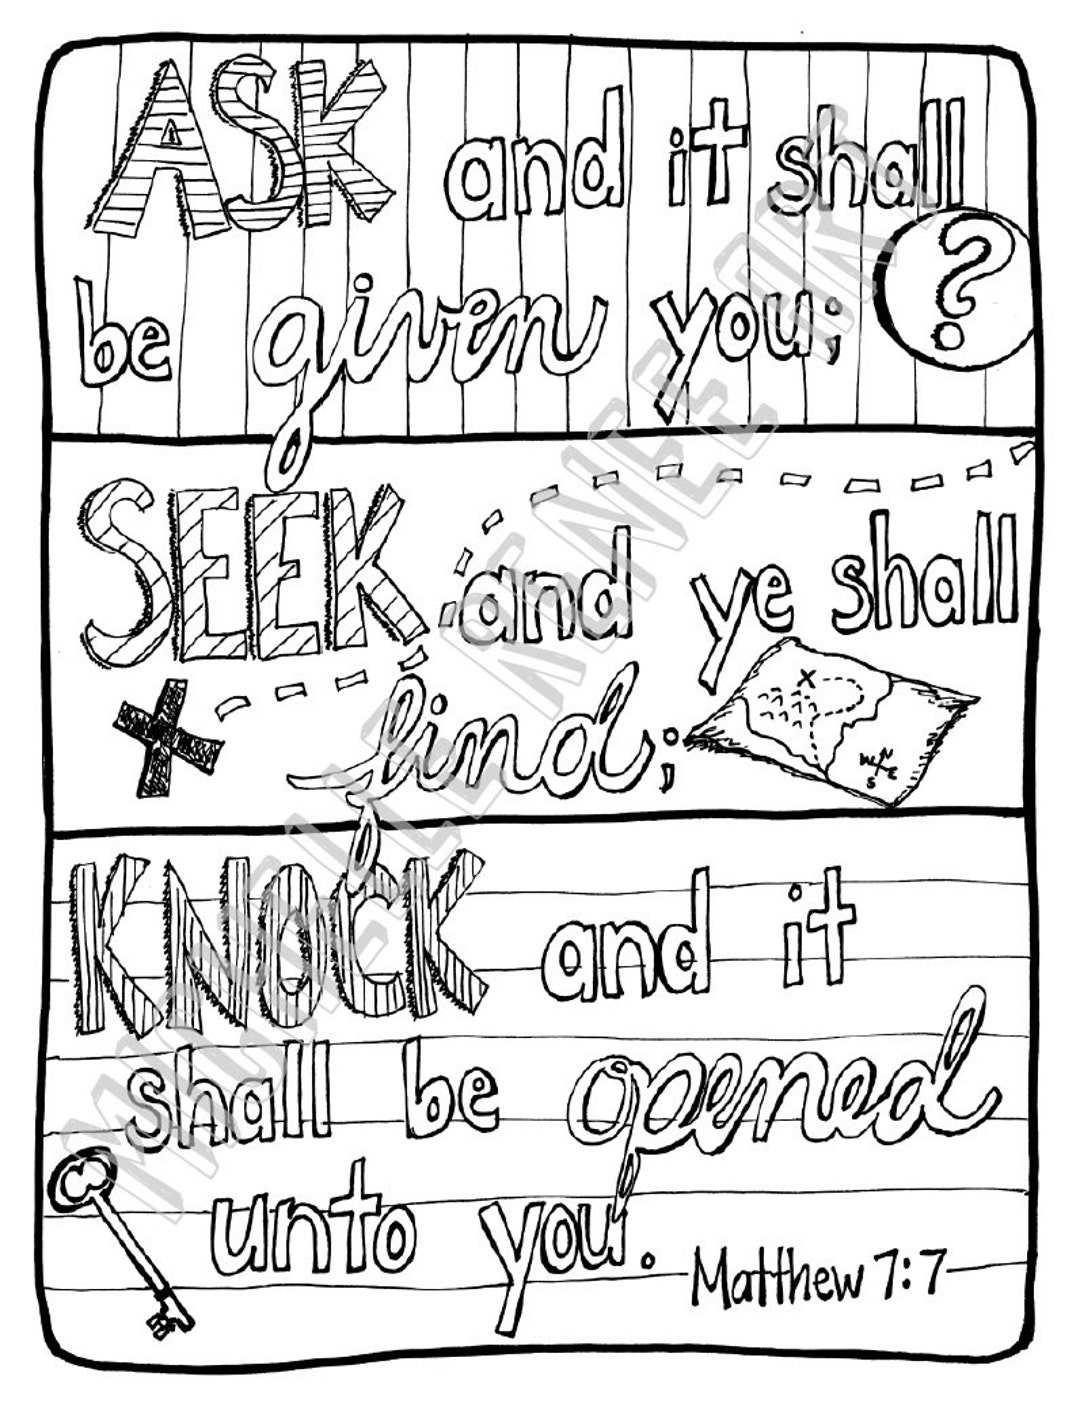 ASK and it shall
be given you;
?
SEEK and ye shall
find;
X
N
W E
S
KNOCK and it
shall be opened
unto you.
Matthew 7:7
MICHELLE RENEE ART